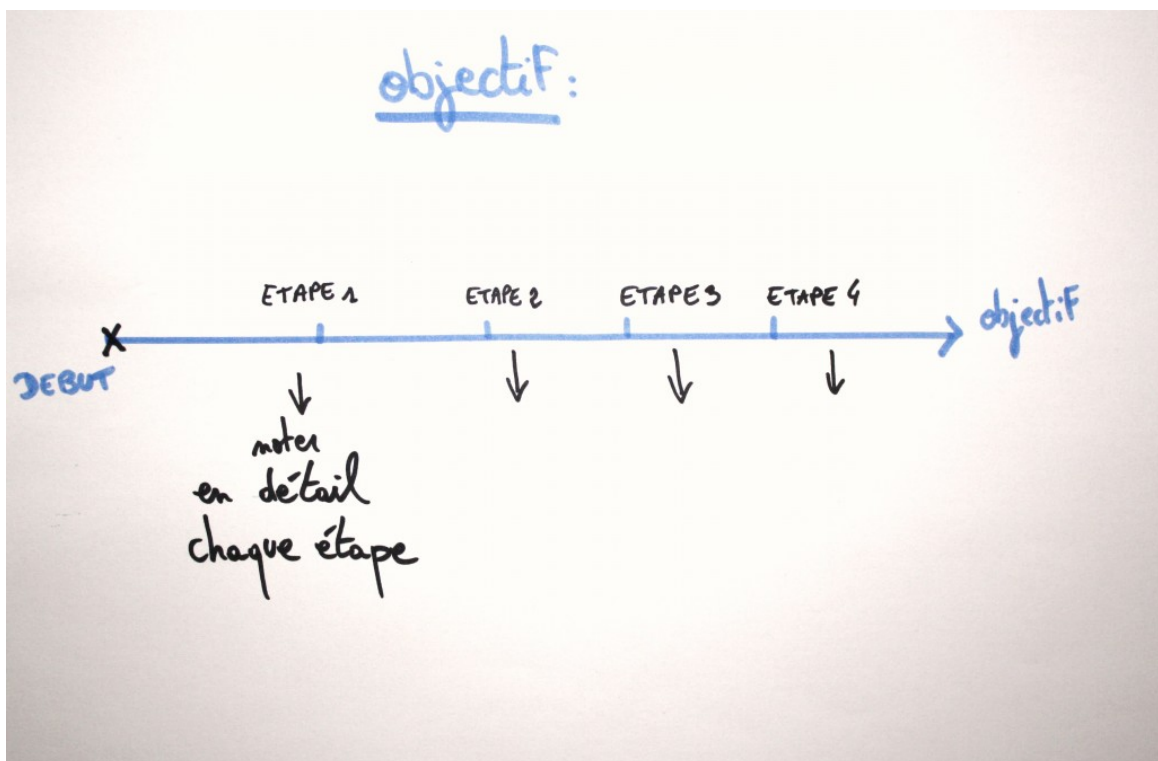 objectif :
ETAPE 1
ETAPE 2
ETAPE 3
ETAPE 4
objectif
DEBUT
noter
en détail
chaque étape